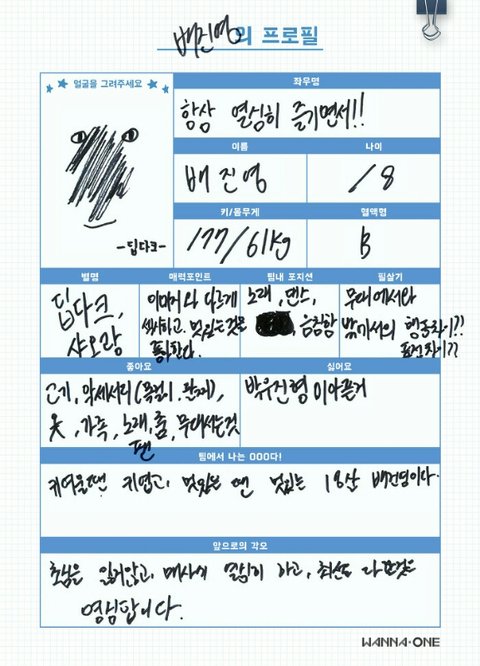 배진영의 프로필
얼굴을 그려주세요
-딥다크-
좌우명
항상 열심히 즐기면서!!
이름
배진영
나이
18
키/몸무게
177/61kg
혈액형
B
별명
딥다크,
샤오랑
매력포인트
이미지와 다르게
섹시하고, 멋있는것은
좋아한다.
팀내 포지션
노래, 댄스,
음침함
필살기
무대에서와
밖에서의 행동차이??
표정차이??
좋아요
고기, 악세서리(목걸이, 반지),
옷, 가족, 노래, 춤, 무대서는것
팬
싫어요
박우진형 이 아픈거
팀에서 나는 OOO다!
귀여울땐 귀엽고, 멋있을 땐 멋있는 18살 배진영이다.
앞으로의 각오
초심을 잃지않고, 매사에 열심히 하고, 최선을 다하겠
영입니다.
WANNA·ONE